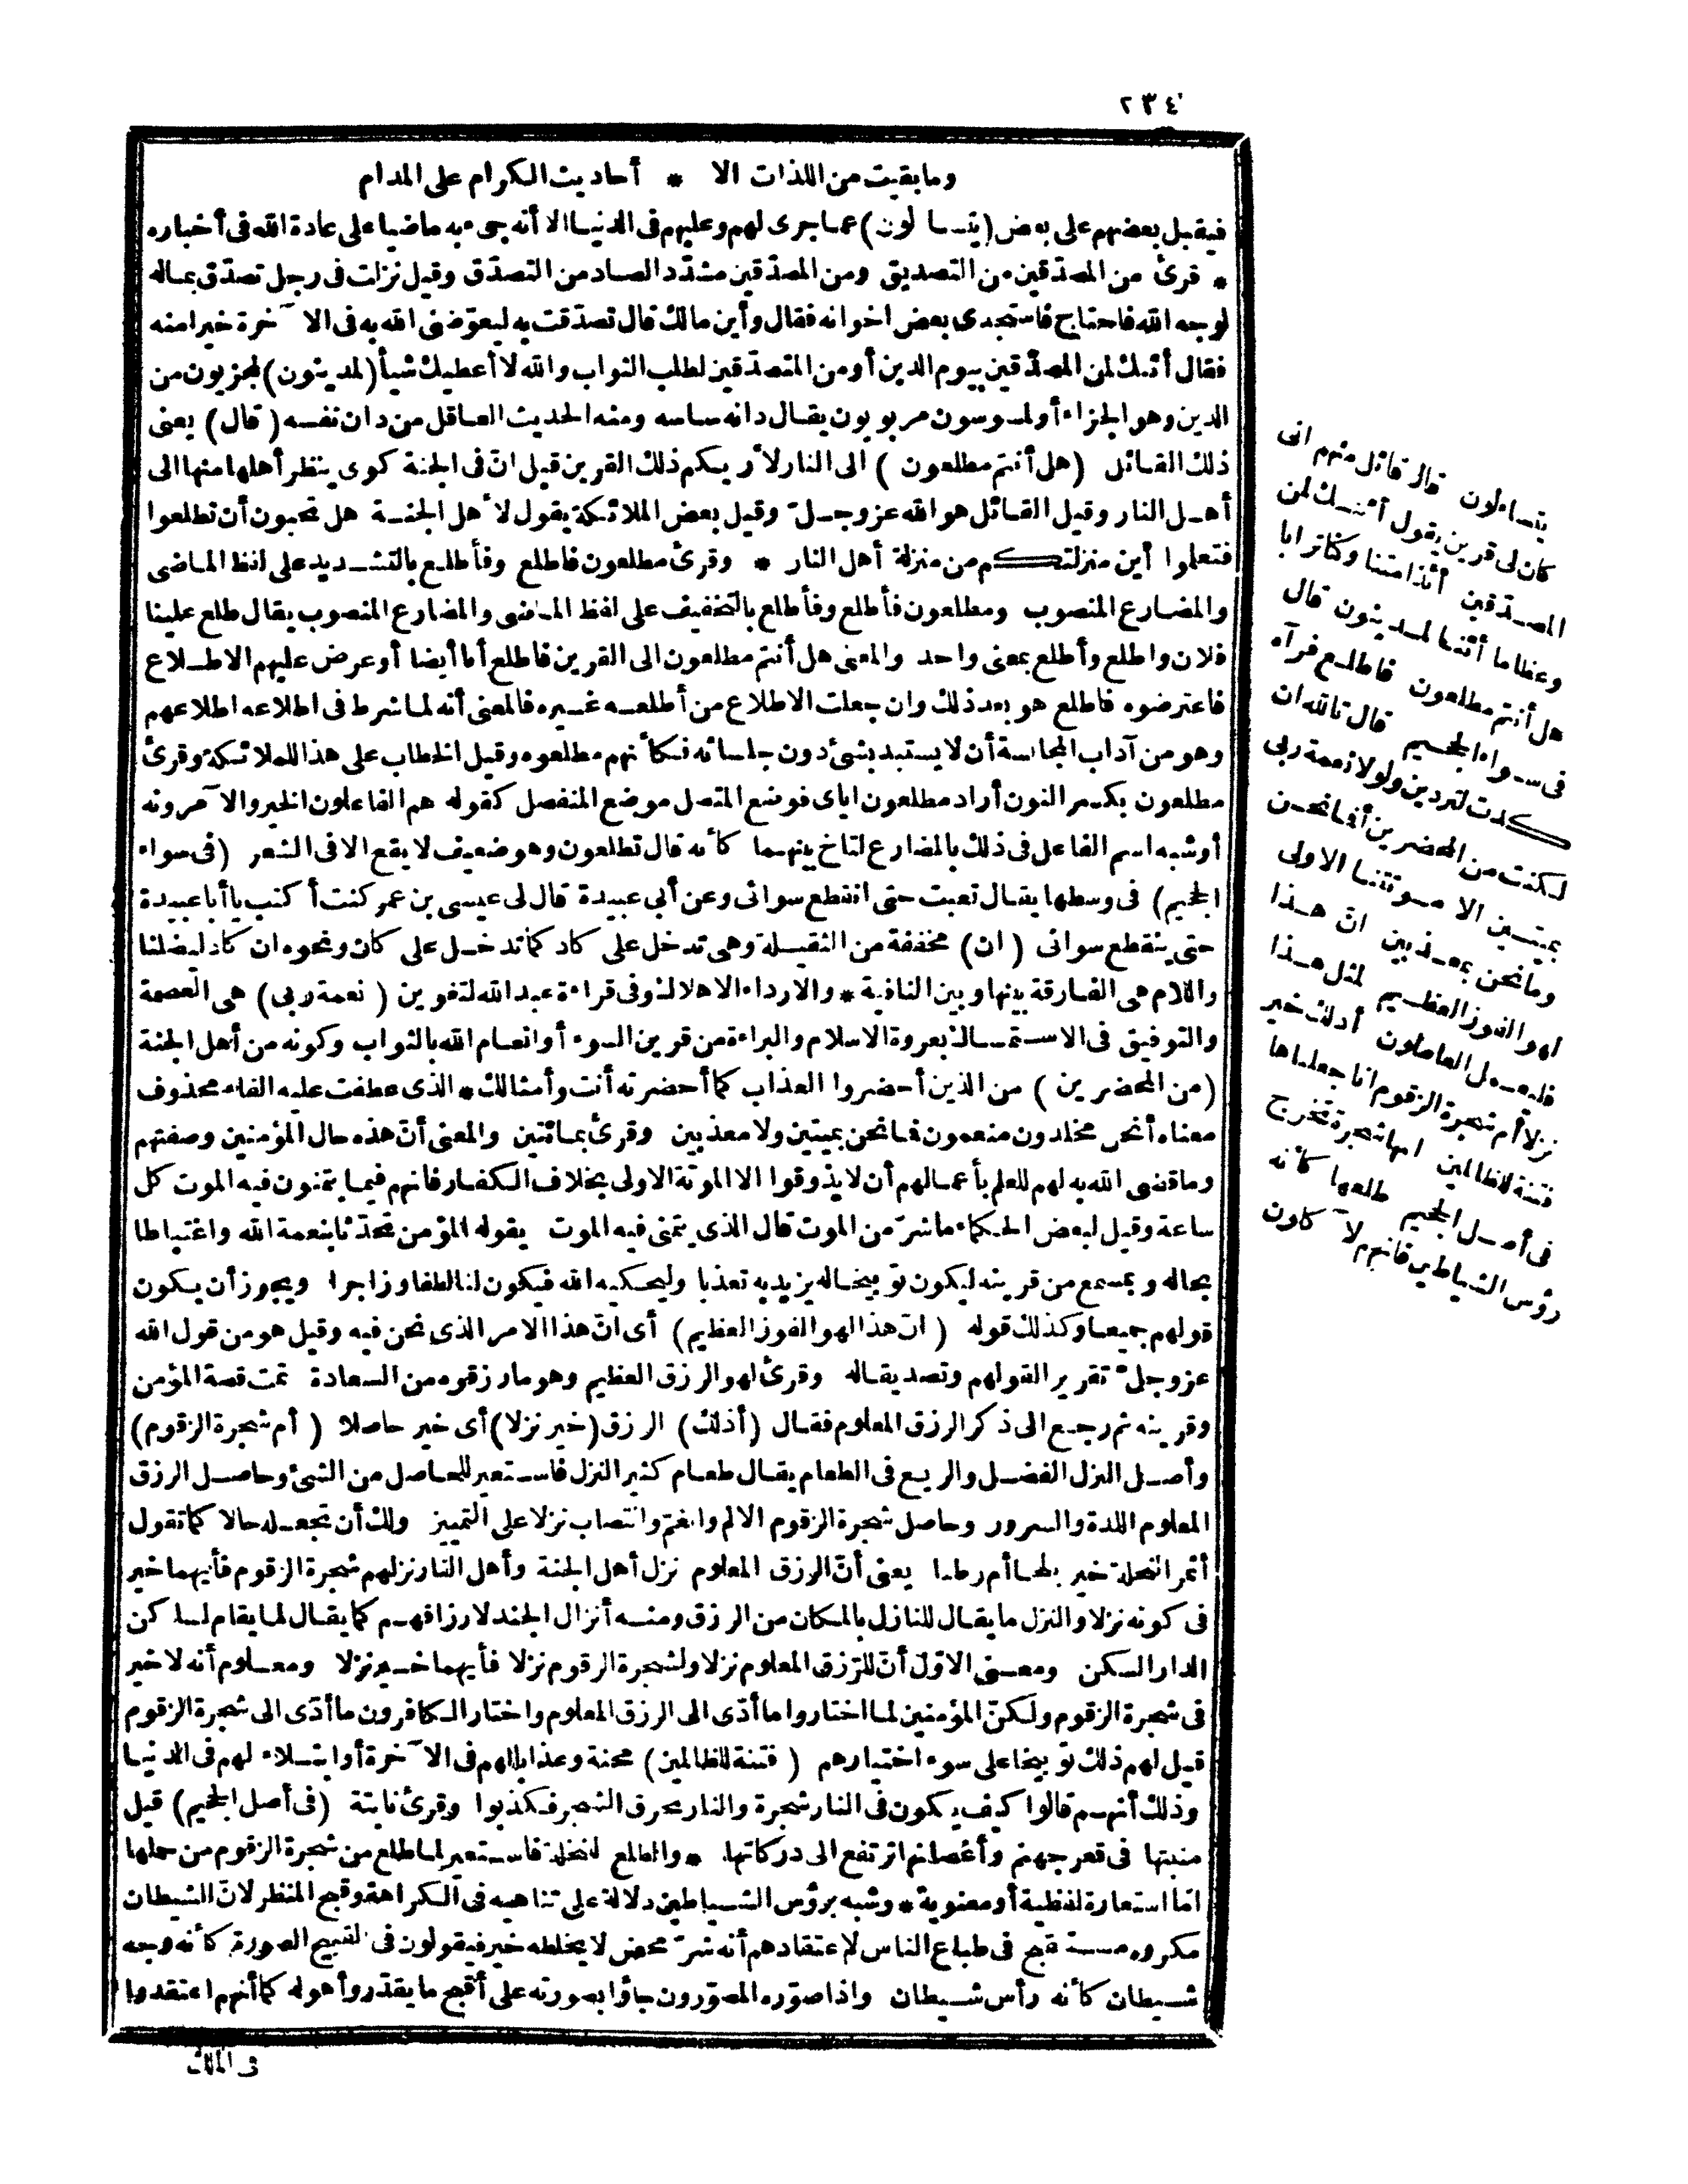 ٢٣٤
وما بقيت من اللذات الا * أحاديث الكرام على المدام
فيقبل بعضهم على بعض (يتساءلون) عما جرى لهم وعليهم فى الدنيا الا أنه جىء به ماضيا على عادة الله فى أخباره
* قرئ من المصدّقين من التصديق ومن المصدّقين مشدّد الصاد من التصدّق وقيل نزلت فى رجل تصدّق بماله
لوجه الله فاحتاج فاستجدى بعض اخوانه فقال وأين مالك قال تصدّقت به ليعوّضنى الله به فى الآخرة خيرا منه
فقال أئنك لمن المصدّقين بيوم الدين أو من المتصدّقين لطلب الثواب والله لا أعطيك شيأ (لمدينون) لمجزيون من
الدين وهو الجزاء أو لمسوسون مربوبون يقال دانه ساسه ومنه الحديث العاقل من دان نفسه (قال) يعنى
ذلك القائل (هل أنتم مطلعون) الى النار لأريكم ذلك القرين قيل انّ فى الجنة كوى ينظر أهلها منها الى
أهل النار وقيل القائل هو الله عز وجلّ وقيل بعض الملائكة يقول لأهل الجنة هل تحبون أن تطلعوا
فتعلموا أين منزلتكم من منزلة أهل النار * وقرئ مطلعون فاطلع وفأطلع بالتشديد على لفظ الماضى
والمضارع المنصوب ومطلعون فأطلع وفأطلع بالتخفيف على لفظ الماضى والمضارع المنصوب يقال طلع علينا
فلان واطلع وأطلع بمعنى واحد والمعنى هل أنتم مطلعون الى القرين فاطلع أنا أيضا أو عرض عليهم الاطلاع
فاعترضوه فاطلع هو بعد ذلك وان جعلت الاطلاع من أطلعه غيره فالمعنى أنه لما شرط فى اطلاعه اطلاعهم
وهو من آداب المجالسة أن لا يستبد بشئ دون جلسائه فكأنهم مطلعوه وقيل الخطاب على هذا للملائكة وقرئ
مطلعون بكسر النون أراد مطلعون اياى فوضع المتصل موضع المنفصل كقوله هم الفاعلون الخير والآمرونه
أو شبه اسم الفاعل فى ذلك بالمضارع لتاخ بينهما كأنه قال تطلعون وهو ضعيف لا يقع الا فى الشعر (فى سواء
الجحيم) فى وسطها يقال تعبت حتى انقطع سوائى وعن أبى عبيدة قال لى عيسى بن عمر كنت أكتب يا أبا عبيدة
حتى ينقطع سوائى (ان) مخففة من الثقيلة وهى تدخل على كاد كما تدخل على كان ونحوه ان كاد ليضلنا
واللام هى الفارقة بينها وبين النافية * والارداء الاهلاك وفى قراءة عبد الله لتغوين (نعمة ربى) هى العصمة
والتوفيق فى الاستمساك بعروة الاسلام والبراءة من قرين السوء أو انعام الله بالثواب وكونه من أهل الجنة
(من المحضرين) من الذين أحضروا العذاب كما أحضرته أنت وأمثالك * الذى عطفت عليه الفاء محذوف
معناه أنحن مخلدون منعمون فما نحن بميتين ولا معذبين وقرئ بمائتين والمعنى أنّ هذه حال المؤمنين وصفتهم
وما قضى الله به لهم للعلم بأعمالهم أن لا يذوقوا الا الموتة الاولى بخلاف الكفار فانهم فيما يتمنون فيه الموت كل
ساعة وقيل لبعض الحكماء ما شرّ من الموت قال الذى يتمنى فيه الموت يقوله المؤمن تحدّثا بنعمة الله واغتباطا
بحاله وبمسمع من قرينه ليكون توبيخا له يزيد به تعذبا وليحكيه الله فيكون لنا لطفا وزاجرا ويجوز أن يكون
قولهم جميعا وكذلك قوله (انّ هذا لهو الفوز العظيم) أى انّ هذا الامر الذى نحن فيه وقيل هو من قول الله
عز وجلّ تقريرا لقولهم وتصديقا له وقرئ لهو الرزق العظيم وهو ما رزقوه من السعادة تمت قصة المؤمن
وقرينه ثم رجع الى ذكر الرزق المعلوم فقال (أذلك) الرزق (خير نزلا) أى خير حاصلا (أم شجرة الزقوم)
وأصل النزل الفضل والريع فى الطعام يقال طعام كثير النزل فاستعير للحاصل من الشئ وحاصل الرزق
المعلوم اللذة والسرور وحاصل شجرة الزقوم الالم والغمّ وانتصاب نزلا على التمييز ولك أن تجعله حالا كما تقول
أثمر النخلة خير بلحا أم رطبا يعنى أنّ الرزق المعلوم نزل أهل الجنة وأهل النار نزلهم شجرة الزقوم فأيهما خير
فى كونه نزلا والنزل ما يقال للنازل بالمكان من الرزق ومنه أنزال الجند لارزاقهم كما يقال لما يقام لساكن
الدار السكن ومعنى الاوّل أنّ للرّزق المعلوم نزلا ولشجرة الزقوم نزلا فأيهما خير نزلا ومعلوم أنه لا خير
فى شجرة الزقوم ولكنّ المؤمنين لما اختاروا ما أدّى الى الرزق المعلوم واختار الكافرون ما أدّى الى شجرة الزقوم
قيل لهم ذلك توبيخا على سوء اختيارهم (فتنة للظالمين) محنة وعذابا لهم فى الآخرة أو ابتلاء لهم فى الدنيا
وذلك أنهم قالوا كيف يكون فى النار شجرة والنار تحرق الشجر فكذبوا وقرئ نابتة (فى أصل الجحيم) قيل
منبتها فى قعر جهنم وأغصانها ترتفع الى دركاتها * والطلع للنخلة فاستعير لما طلع من شجرة الزقوم من حملها
امّا استعارة لفظية أو معنوية * وشبه برؤس الشياطين دلالة على تناهيه فى الكراهة وقبح المنظر لانّ الشيطان
مكروه مستقبح فى طباع الناس لاعتقادهم أنه شرّ محض لا يخلطه خير فيقولون فى القبيح الصورة كأنه وجه
شيطان كأنه رأس شيطان واذا صوّره المصوّرون جاؤا بصورته على أقبح ما يقدّر وأهوله كما أنهم اعتقدوا
فى الملك
يتساءلون قال قائل منهم انى
كان لى قرين يقول أئنك لمن
المصدّقين أئذا متنا وكنا ترابا
وعظاما أئنا لمدينون قال
هل أنتم مطلعون فاطلع فرآه
فى سواء الجحيم قال تالله ان
كدت لتردين ولولا نعمة ربى
لكنت من المحضرين أفما نحن
بميتين الا موتتنا الاولى
وما نحن بمعذبين انّ هذا
لهو الفوز العظيم لمثل هذا
فليعمل العاملون أذلك خير
نزلا أم شجرة الزقوم انا جعلناها
فتنة للظالمين انها شجرة تخرج
فى أصل الجحيم طلعها كأنه
رؤس الشياطين فانهم لآكلون